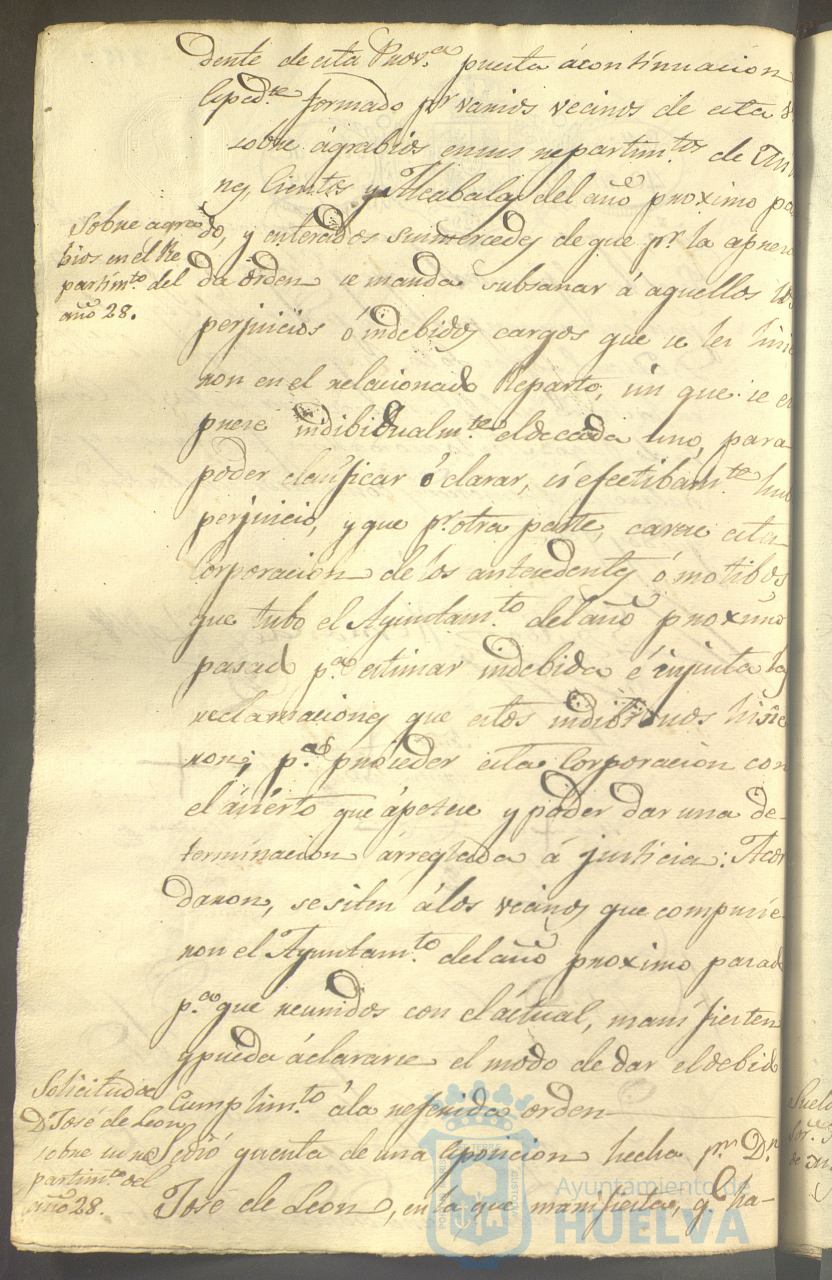 dente de esta Prov.ª puesta á continuacion
Esped.te formado p.r varios vecinos de esta
sobre ágrabios en sus repartim.tos de
Cientos y Alcabalas del año proximo pa
Sobre agra
bios en el Re
partim.to del
año 28.
do, y enterados sus mercedes de que p.r la apre
da órden se manda subsanar á aquellos los
perjuicios ó indebidos cargos que se les hicie
ron en el relacionado Reparto, sin que se es
prese indibidualm.te el de cada uno, para
poder clasificar ó clarar, si efectibam.te hubo
perjuicio, y que p.r otra parte, carece esta
Corporacion de los antecedentes ó motibos
que tubo el Ayuntam.to del año proximo
pasado p.a estimar indebida é injusta las
reclamaciones que estos indibiduos hisie
ron; p.a proceder esta Corporacion con
el ácierto que ápetece y poder dar una de-
terminacion árreglada á justicia: Acor
daron, se siten álos vecinos que compusie
ron el Ayuntam.to del año proximo pasado
p.a que reunidos con el áctual, manifiesten
y pueda áclararse el modo de dar el debido
cumplim.to ála referida orden
Solicitud de
D.n José de Leon
sobre su re
partim.to del
año 28.
Se dió quenta de una esposicion hecha p.r D.n
José de Leon, en la que manifiesta, q.e ha-
Ayuntamiento de
HUELVA